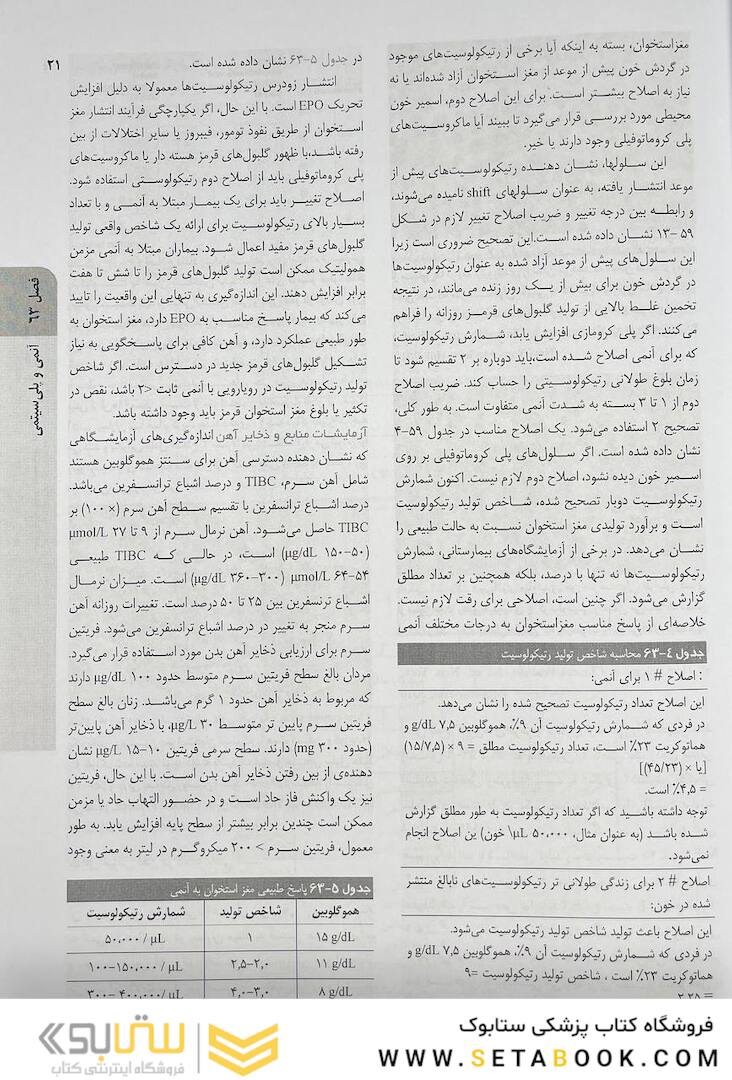 مغزاستخوان، بسته به اینکه آیا برخی از رتیکولوسیت‌های موجود
در گردش خون پیش از موعد از مغز استخوان آزاد شده‌اند یا نه
نیاز به اصلاح بیشتر است. برای این اصلاح دوم، اسمیر خون
محیطی مورد بررسی قرار می‌گیرد تا ببیند آیا ماکروسیت‌های
پلی کروماتوفیلی وجود دارند یا خیر.
این سلولها، نشان دهنده رتیکولوسیت‌های پیش از
موعد انتشار یافته، به عنوان سلولهای shift نامیده می‌شوند،
و رابطه بین درجه تغییر و ضریب اصلاح تغییر لازم در شکل
۵۹–۱۳ نشان داده شده است.این تصحیح ضروری است زیرا
این سلول‌های پیش از موعد آزاد شده به عنوان رتیکولوسیت‌ها
در گردش خون برای بیش از یک روز زنده می‌مانند، در نتیجه
تخمین غلط بالایی از تولید گلبول‌های قرمز روزانه را فراهم
می‌کنند. اگر پلی کرومازی افزایش یابد، شمارش رتیکولوسیت،
که برای آنمی اصلاح شده است،باید دوباره بر ۲ تقسیم شود تا
زمان بلوغ طولانی رتیکولوسیتی را حساب کند. ضریب اصلاح
دوم از ۱ تا ۳ بسته به شدت آنمی متفاوت است. به طور کلی،
تصحیح ۲ استفاده می‌شود. یک اصلاح مناسب در جدول ۵۹–۴
نشان داده شده است. اگر سلول‌های پلی کروماتوفیلی بر روی
اسمیر خون دیده نشود، اصلاح دوم لازم نیست. اکنون شمارش
رتیکولوسیت دوبار تصحیح شده، شاخص تولید رتیکولوسیت
است و برآورد تولیدی مغز استخوان نسبت به حالت طبیعی را
نشان می‌دهد. در برخی از آزمایشگاه‌های بیمارستانی، شمارش
رتیکولوسیت‌ها نه تنها با درصد، بلکه همچنین بر تعداد مطلق
گزارش می‌شود. اگر چنین است، اصلاحی برای رقت لازم نیست.
خلاصه‌ای از پاسخ مناسب مغزاستخوان به درجات مختلف آنمی
جدول ٤–۶۳ محاسبه شاخص تولید رتیکولوسیت
: اصلاح # ۱ برای آنمی:
این اصلاح تعداد رتیکولوسیت تصحیح شده را نشان می‌دهد.
در فردی که شمارش رتیکولوسیت آن ۹٪، هموگلوبین ۷,۵ g/dL و
هماتوکریت ۲۳٪ است، تعداد رتیکولوسیت مطلق = ۹ × (۱۵/۷٫۵)
[یا × (۴۵/۲۳)]
= ۴٫۵٪ است.
توجه داشته باشید که اگر تعداد رتیکولوسیت به طور مطلق گزارش
شده باشد (به عنوان مثال، ۵۰،۰۰۰ µL\ خون) ین اصلاح انجام
نمی‌شود.
اصلاح # ۲ برای زندگی طولانی تر رتیکولوسیت‌های نابالغ منتشر
شده در خون:
این اصلاح باعث تولید شاخص تولید رتیکولوسیت می‌شود.
در فردی که شمارش رتیکولوسیت آن ۹٪، هموگلوبین ۷,۵ g/dL و
هماتوکریت ۲۳٪ است ، شاخص تولید رتیکولوسیت =۹
۲۱
در جدول ۵–۶۳ نشان داده شده است.
انتشار زودرس رتیکولوسیت‌ها معمولا به دلیل افزایش
تحریک EPO است. با این حال، اگر یکپارچگی فرآیند انتشار مغز
استخوان از طریق نفوذ تومور، فیبروز یا سایر اختلالات از بین
رفته باشد،با ظهور گلبول‌های قرمز هسته دار یا ماکروسیت‌های
پلی کروماتوفیلی باید از اصلاح دوم رتیکولوستی استفاده شود.
اصلاح تغییر باید برای یک بیمار مبتلا به آنمی و با تعداد
بسیار بالای رتیکولوسیت برای ارائه یک شاخص واقعی تولید
گلبول‌های قرمز مفید اعمال شود. بیماران مبتلا به آنمی مزمن
همولیتیک ممکن است تولید گلبول‌های قرمز را تا شش تا هفت
برابر افزایش دهند. این اندازه‌گیری به تنهایی این واقعیت را تایید
می‌کند که بیمار پاسخ مناسب به EPO دارد، مغز استخوان به
طور طبیعی عملکرد دارد، و آهن کافی برای پاسخگویی به نیاز
تشکیل گلبول‌های قرمز جدید در دسترس است. اگر شاخص
تولید رتیکولوسیت در رویارویی با آنمی ثابت <۲ باشد، نقص در
تکثیر یا بلوغ مغز استخوان قرمز باید وجود داشته باشد.
آزمایشات منابع و ذخایر آهن اندازه‌گیری‌های آزمایشگاهی
که نشان دهنده دسترسی آهن برای سنتز هموگلوبین هستند
شامل آهن سرم، TIBC و درصد اشباع ترانسفرین می‌باشد.
درصد اشباع ترانسفرین با تقسیم سطح آهن سرم (× ۱۰۰) بر
TIBC حاصل می‌شود. آهن نرمال سرم از ۹ تا ۲۷ µmol/L
(۵۰–۱۵۰ µg/dL) است، در حالی که TIBC طبیعی
۵۴–۶۴ µmol/L (۳۰۰–۳۶۰ µg/dL) است. میزان نرمال
اشباع ترنسفرین بین ۲۵ تا ۵۰ درصد است. تغییرات روزانه آهن
سرم منجر به تغییر در درصد اشباع ترانسفرین می‌شود. فریتین
سرم برای ارزیابی ذخایر آهن بدن مورد استفاده قرار می‌گیرد.
مردان بالغ سطح فریتین سرم متوسط حدود ۱۰۰ µg/dL دارند
که مربوط به ذخایر آهن حدود ۱ گرم می‌باشد. زنان بالغ سطح
فریتین سرم پایین تر متوسط ۳۰ µg/L، با ذخایر آهن پایین‌تر
(حدود ۳۰۰ mg) دارند. سطح سرمی فریتین ۱۰–۱۵ µg/L نشان
دهنده‌ی از بین رفتن ذخایر آهن بدن است. با این حال، فریتین
نیز یک واکنش فاز حاد است و در حضور التهاب حاد یا مزمن
ممکن است چندین برابر بیشتر از سطح پایه افزایش یابد. به طور
معمول، فریتین سرم > ۲۰۰ میکروگرم در لیتر به معنی وجود
جدول ۵–۶۳ پاسخ طبیعی مغز استخوان به آنمی
هموگلوبین شاخص تولید شمارش رتیکولوسیت
۱۵ g/dL ۱ ۵۰،۰۰۰ / µL
۱۱ g/dL ۲٫۰–۲٫۵ ۱۰۰–۱۵۰،۰۰۰ / µL
۸ g/dL ۳٫۰–۴٫۰ ۳۰۰– ۴۰۰،۰۰۰/ µL
فصل ۶۳ آنمی و پلی‌سیتمی
فروشگاه کتاب پزشکی ستابوک
WWW.SETABOOK.COM
ستابوک
فروشگاه اینترنتی کتاب